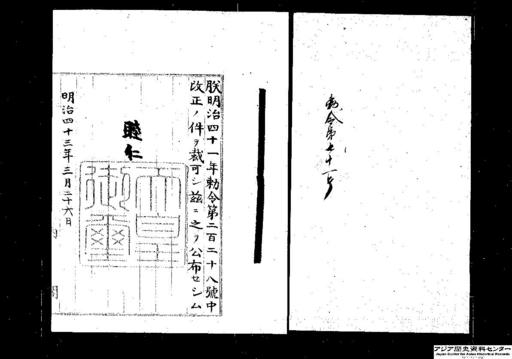 勅令第七十一号
朕明治四十一年勅令第二百二十八號中
改正ノ件ヲ裁可シ茲ニ之ヲ公布セシム
睦仁
天皇
御璽
明治四十三年三月二十六日
内
閣
アジア歴史資料センター
Japan Center for Asian Historical Records